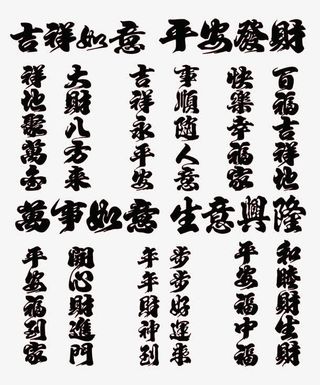 吉祥如意 平安發財
百福吉祥地
快樂幸福家
事順隨人意
吉祥永平安
大財八方來
祥地聚萬金
萬事如意 生意興隆
和睦財生財
平安福中福
步步好運來
年年財神到
開心財進門
平安福到家